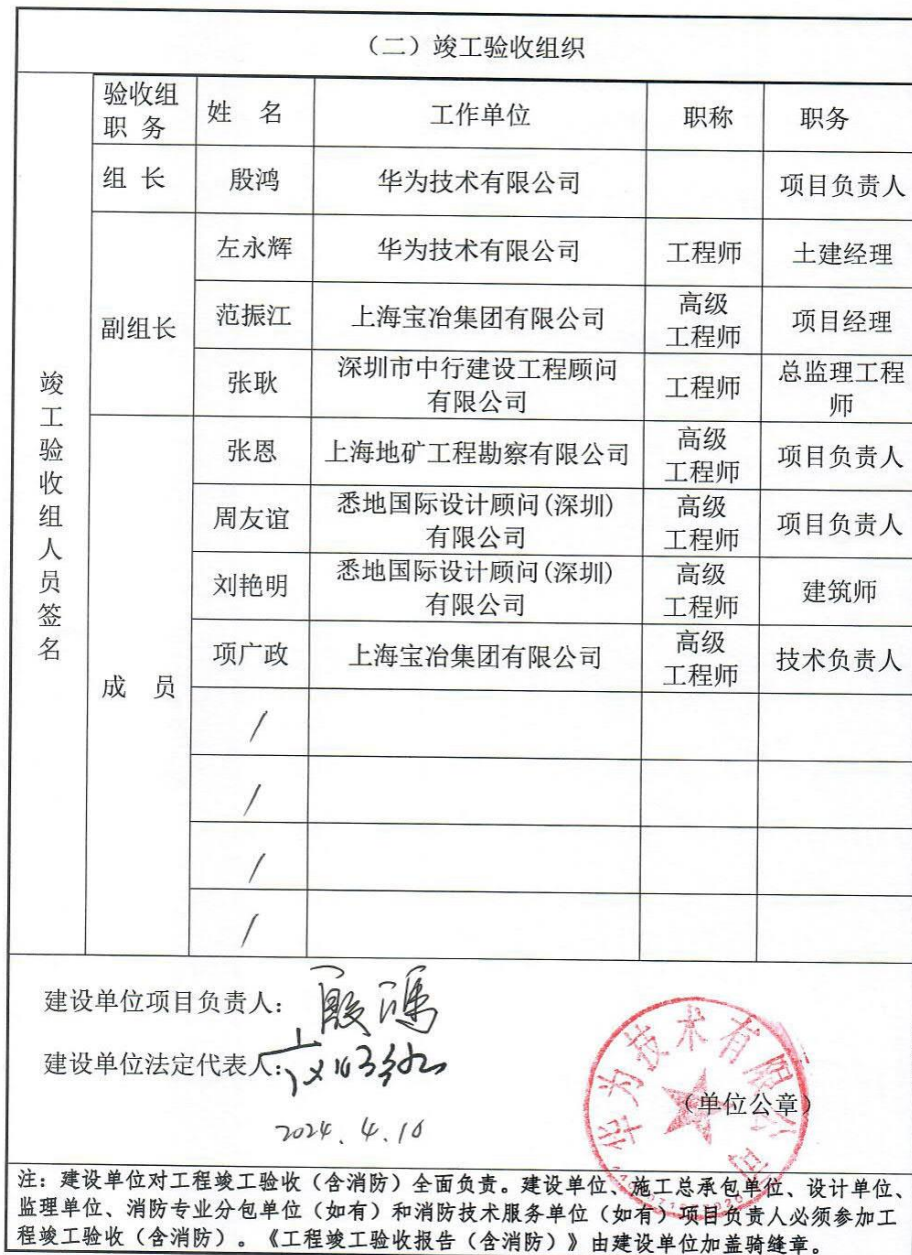 （二）竣工验收组织
竣工验收组人员签名
验收组职务 姓 名 工作单位 职称 职务
组 长 殷鸿 华为技术有限公司 项目负责人
副组长
左永辉 华为技术有限公司 工程师 土建经理
范振江 上海宝冶集团有限公司 高级工程师 项目经理
张耿 深圳市中行建设工程顾问有限公司 工程师 总监理工程师
成 员
张恩 上海地矿工程勘察有限公司 高级工程师 项目负责人
周友谊 悉地国际设计顾问(深圳)有限公司 高级工程师 项目负责人
刘艳明 悉地国际设计顾问(深圳)有限公司 高级工程师 建筑师
项广政 上海宝冶集团有限公司 高级工程师 技术负责人
/
/
/
/
建设单位项目负责人：殷鸿
建设单位法定代表人：
华为技术有限公司
（单位公章）
2024.4.10
注：建设单位对工程竣工验收（含消防）全面负责。建设单位、施工总承包单位、设计单位、
监理单位、消防专业分包单位（如有）和消防技术服务单位（如有）项目负责人必须参加工
程竣工验收（含消防）。《工程竣工验收报告（含消防）》由建设单位加盖骑缝章。